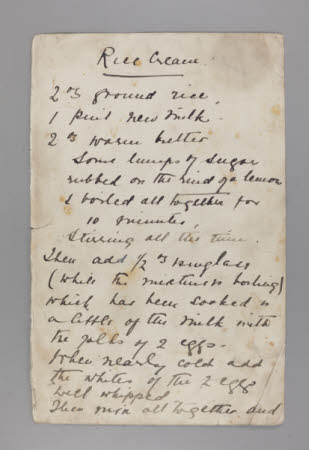 Rice Cream.
2 oz ground rice,
1 pint new milk.
2 oz warm butter
Some lumps of sugar
rubbed on the rind of a lemon
& boiled all together for
10 minutes,
Stirring all the time.
Then add 1/2 oz Isinglass
(while the mixture is boiling)
which has been soaked in
a little of the milk with
the yolks of 2 eggs.
When nearly cold add
the whites of the 2 eggs
well whipped
Then mix all together and